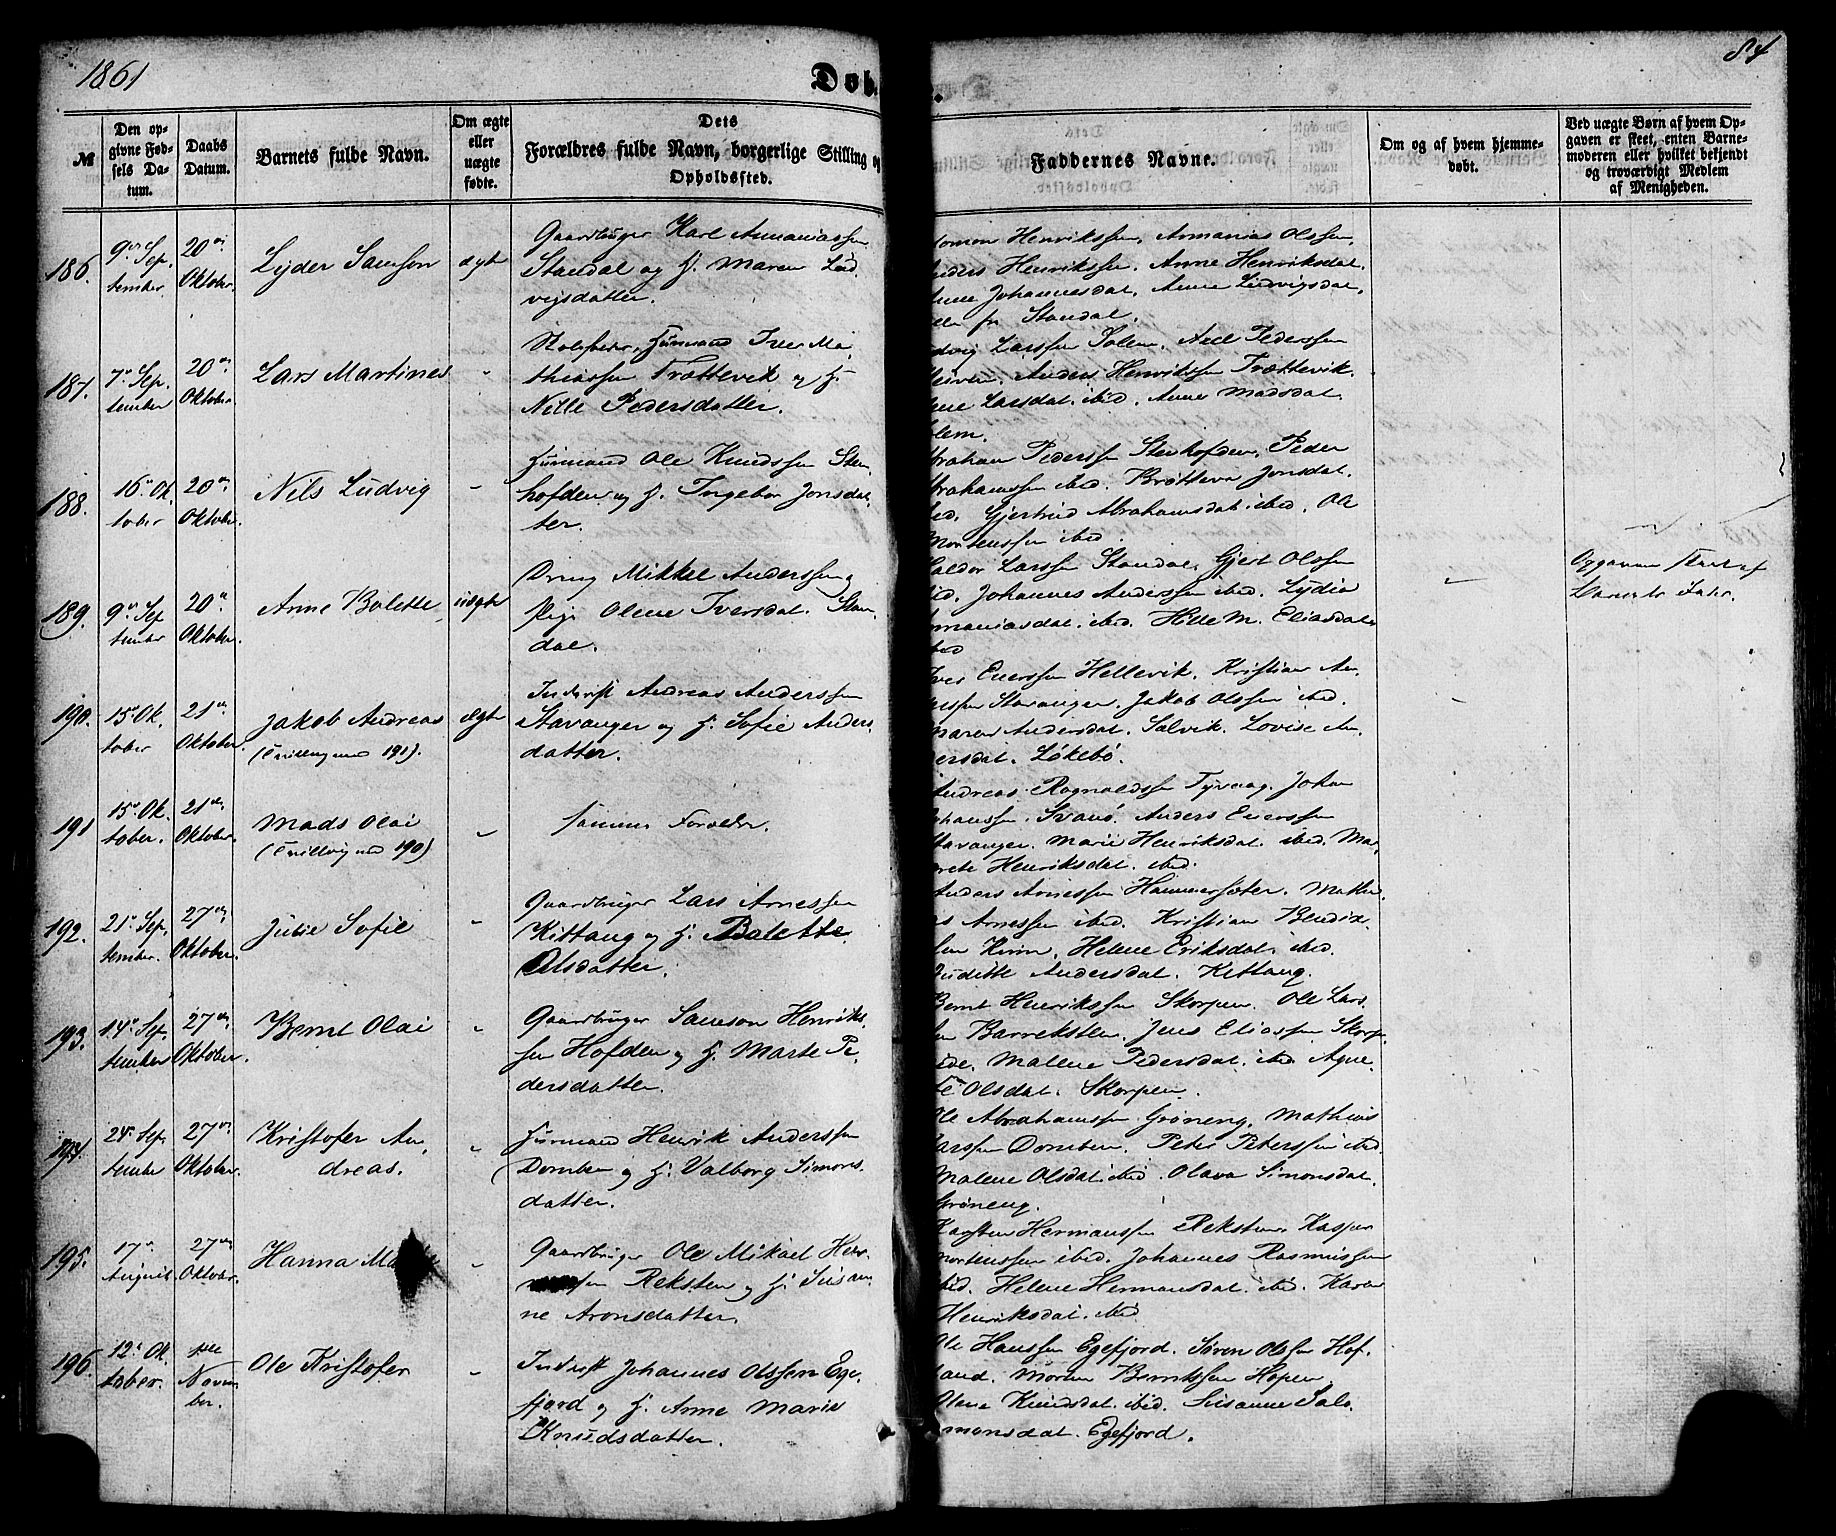 1861
84
Døb.
№
Den op-
givne Fød-
sels Da-
tum.
Daabs
Datum.
Barnets fulde Navn.
Om ægte
eller
uægte
fødte.
Dets
Forældres fulde Navn, borgerlige Stilling og
Opholdssted.
Faddernes Navne.
Om og af hvem hjemme-
døbt.
Ved uægte Børn af hvem Op-
gaven er skeet, enten Barne-
moderen eller hvilket bekjendt
og troværdigt Medlem
af Menigheden.
186.
9de Sep-
tember
20de
Oktober.
Lyder Samson
ægte
Gaardbruger Karl Ananiassen
Standal og H. Maren Lud
vigsdatter.
lomon Henrikssen, Ananias Olssen,
nders Henrikssen. Anne Henriksdat.
Johannesdat, Anne Ludvigsdat,
fr Standal.
187.
7de Sep.
tember
20de
Oktober.
Lars Martines
"
Huusmand Iver Ma
thiassen Trættevik og H.
Nille Pedersdatter.
dvig Larssen Solem, Niel Pederssen
Anders Henrikssen Trættevik.
Larsdat. ibid. Anne Madsdat.
olem.
188.
16de Ok
tober
20de
Oktober.
Nils Ludvig
"
Huusmand Ole Knudssen Sten
hofden og H. Ingebor Jonsdat
ter.
braham Pederssen Stenhofden, Peder
brahamssen ibid. Brøtteva Jonsdat.
ibid. Gjertrud Abrahamsdat. ibid. Ole
Mortenssen ibid.
189.
9de Sep
tember
20de
Oktober.
Anne Bolette
uægte
Dreng Mikkel Anderssen og
Pige Olene Iversdat. Stan
dal.
aldor Larssen Standal, Gjert Olssen
ibid. Johannes Anderssen ibid. Lydia
nnaniasdat. ibid. Hille M. Eliasdat.
ibid
"
Opgaven skeet af
Barnets Fader.
190.
15de Ok
tober
21de
Oktober.
Jakob Andreas
(Tvilling med 191).
ægte
Inderst Andreas Anderssen
Stavanger og H. Sofie Anders
datter.
Iver Enerssen Hellevik. Kristian An
erssen Stavanger. Jakob Olssen ibid.
Maren Andersdat. Salvik. Lovise An
dersdat. Løkebø.
"
191
15de Ok
tober.
21de
Oktober.
Mads Olai
(Tvilling med 190)
"
samme Forældre.
Andreas Ragnaldssen Tyvaag. Johan
ohanssen. Svanø. Anders Enerssen
Stavanger. Marie Henriksdat. ibid. Mar
grete Henriksdat. ibid.
192.
21de Sep.
tember.
27de
Oktober.
Julie Sofie
"
Gaardbruger Lars Arnessen
Kittang og H. Bolette
Olsdatter.
Anders Arnessen Hammersæter. Mathi
as Arnessen ibid. Kristian Bendix
sen Kvien. Helene Eriksdat. ibid.
Judithe Andersdat. Kittang.
193.
14de Sep
tember
27de
Oktober.
Bernt Olai
"
Gaardbruger Samson Henriks
sen Hofden og H. Marte Pe
dersdatter.
Bernt Henrikssen Skorpen. Ole Lars
sen Barrekstten, Jens Eliassen Skorp
eide, Malene Pedersdat. ibid Agne
te Olsdat. Skorpen.
194.
24de Sep.
tember
27de
Oktober.
Kristofer An
dreas.
"
Huusmand Henrik Anderssen
Domben og H. Valborg Simons
datter.
Ole Abrahamssen Grøneng, Mathias
Larssen Domben. Peter Peterssen ibid.
Malene Olsdat. ibid. Olava Simonsdat.
Grøneng.
195.
17de
August
27de
Oktober.
Hanna Ma
"
Gaardbruger Ole Mikael Her
sen Reksten og H. Susan
ne Aronsdatter.
Karsten Hermanssen Reksten. Kasper
Mortenssen ibid. Johannes Rasmussen
ibid. Helene Hermansdat. ibid. Karen
Henriksdat. ibid.
196.
12de Ok.
tober.
1ste
Novem
ber.
Ole Kristofer
"
Inderst Johannes Olssen Ege
fjord og H. Anne Marie
Knudsdatter.
Ole Hanssen Egefjord. Søren Olssen Hof
land. Morten Berntssen Hopen
Olene Knudsdat. ibid. Susanne Salo
monsdat. Egefjord.